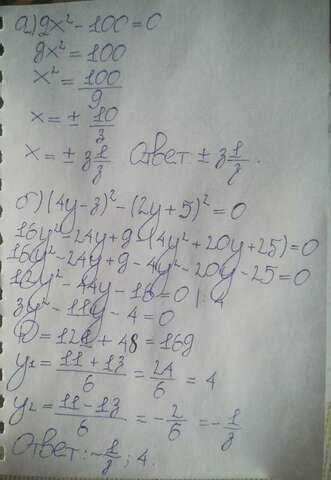 а) 9x² - 100 = 0
9x² = 100
x² = 100/9
x = ± 10/3
x = ± 3 1/3 Ответ: ± 3 1/3.
б) (4y-3)² - (2y+5)² = 0
16y² - 24y + 9 - (4y² + 20y + 25) = 0
16y² - 24y + 9 - 4y² - 20y - 25 = 0
12y² - 44y - 16 = 0 | : 4
3y² - 11y - 4 = 0
D = 121 + 48 = 169
y₁ = (11 + 13)/6 = 24/6 = 4
y₂ = (11 - 13)/6 = -2/6 = -1/3
Ответ: -1/3; 4.